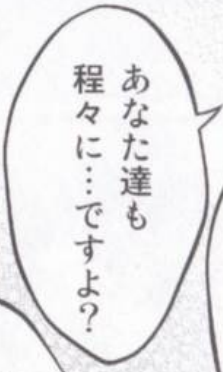 あなた達も
程々に…ですよ？